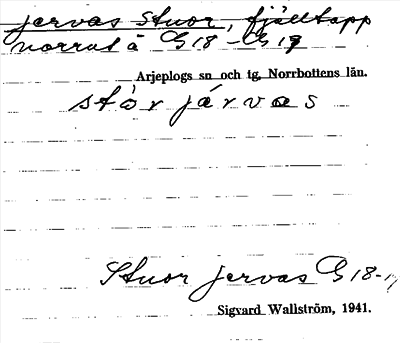 jervas Stuor, fjälltapp
norrut å G 18 - G 19
Arjeplogs sn och tg, Norrbottens län.
stòr járvas
Stuor jervas G 18-
Sigvard Wallström, 1941.